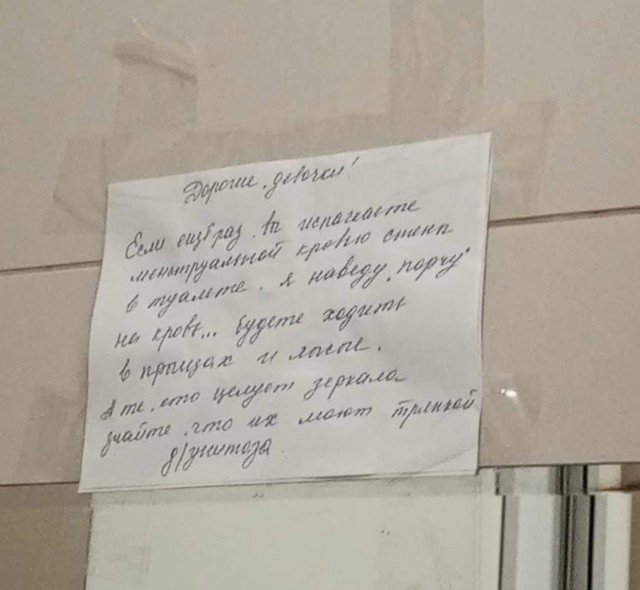 Дорогие девочки!
Если ещё раз вы испачкаете
менструальной кровью стены
в туалете. я наведу "порчу"
на кровь... будете ходить
в прыщах и лысые.
А те, кто целует зеркала
знайте, что их моют тряпкой
д/унитаза